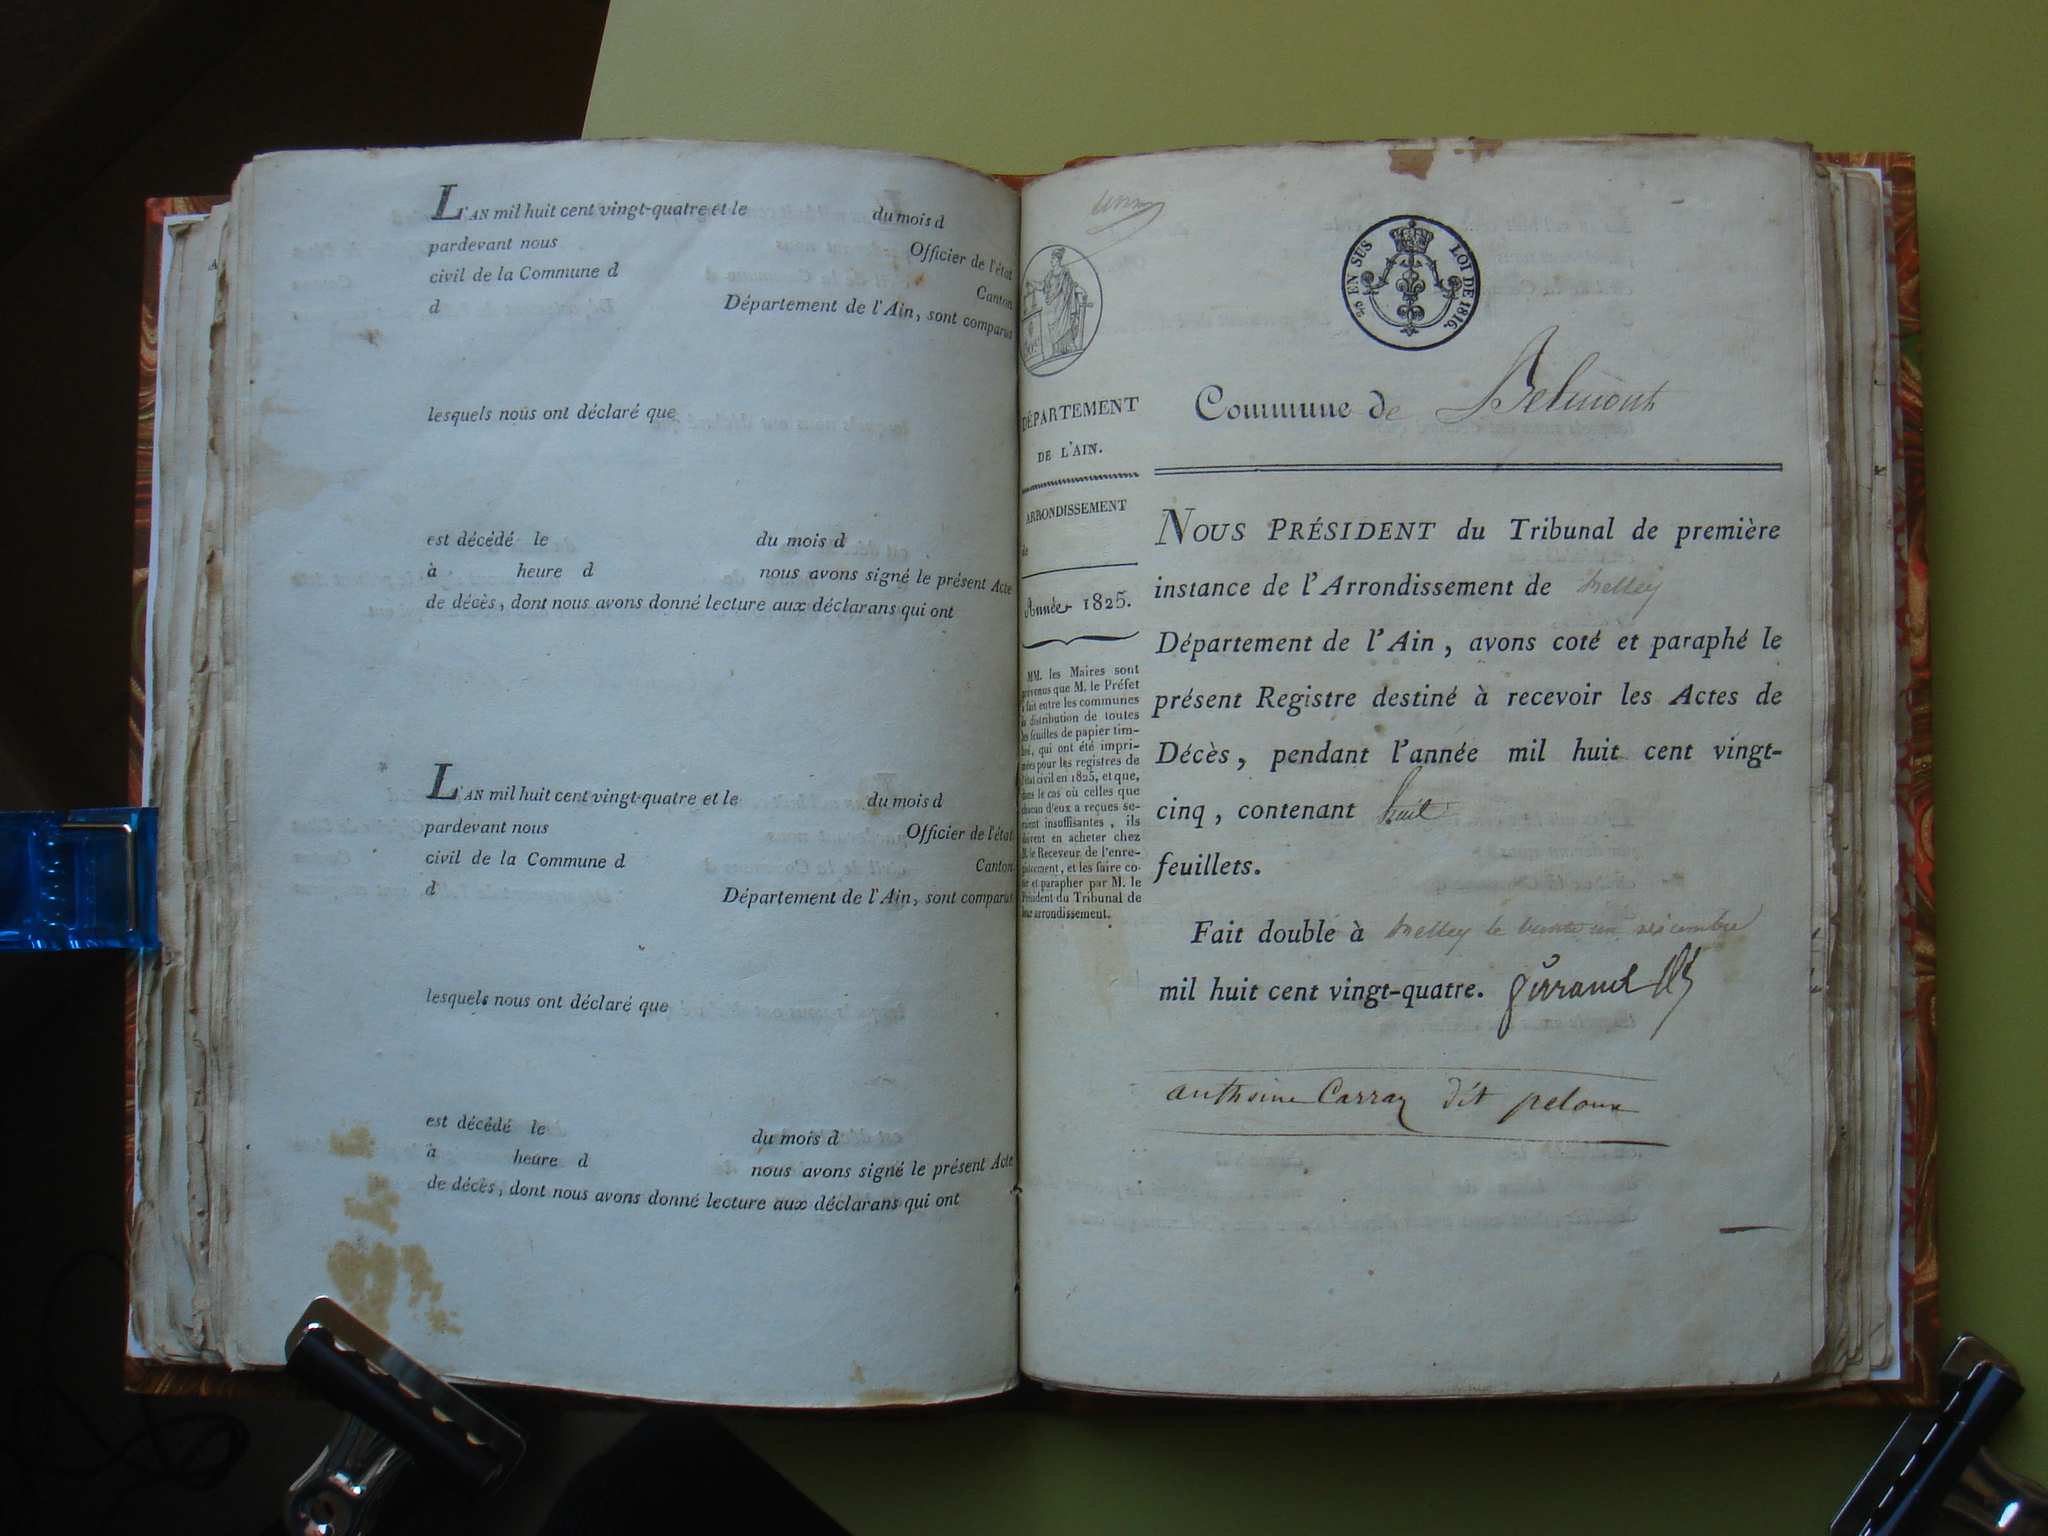 L'AN mil huit cent vingt-quatre et le du mois d
pardevant nous Officier de l'état
civil de la Commune d Canton
d Département de l'Ain, sont comparus
lesquels nous ont déclaré que
est décédé le du mois d
à heure d nous avons signé le présent Acte
de décès, dont nous avons donné lecture aux déclarans qui ont
L'AN mil huit cent vingt-quatre et le du mois d
pardevant nous Officier de l'état
civil de la Commune d Canton
d Département de l'Ain, sont comparus
lesquels nous ont déclaré que
est décédé le du mois d
à heure d nous avons signé le présent Acte
de décès, dont nous avons donné lecture aux déclarans qui ont
DÉPARTEMENT
DE L'AIN.
ARRONDISSEMENT
de
Année 1825.
MM. les Maires sont
prévenus que M. le Préfet
a fait entre les communes
la distribution de toutes
les feuilles de papier tim-
bré, qui ont été impri-
mées pour les registres de
l'état civil en 1825, et que,
dans le cas où celles que
chacun d'eux a reçues se-
raient insuffisantes, ils
doivent en acheter chez
M. le Receveur de l'enre-
gistrement, et les faire co-
ter et parapher par M. le
Président du Tribunal de
leur arrondissement.
EN SUS LOI DE 1816.
Commune de Belmont
NOUS PRÉSIDENT du Tribunal de première
instance de l'Arrondissement de Belley
Département de l'Ain, avons coté et paraphé le
présent Registre destiné à recevoir les Actes de
Décès, pendant l'année mil huit cent vingt-
cinq, contenant huit
feuillets.
Fait double à Belley le trente un décembre
mil huit cent vingt-quatre.
anthoine Carraz dit peloux